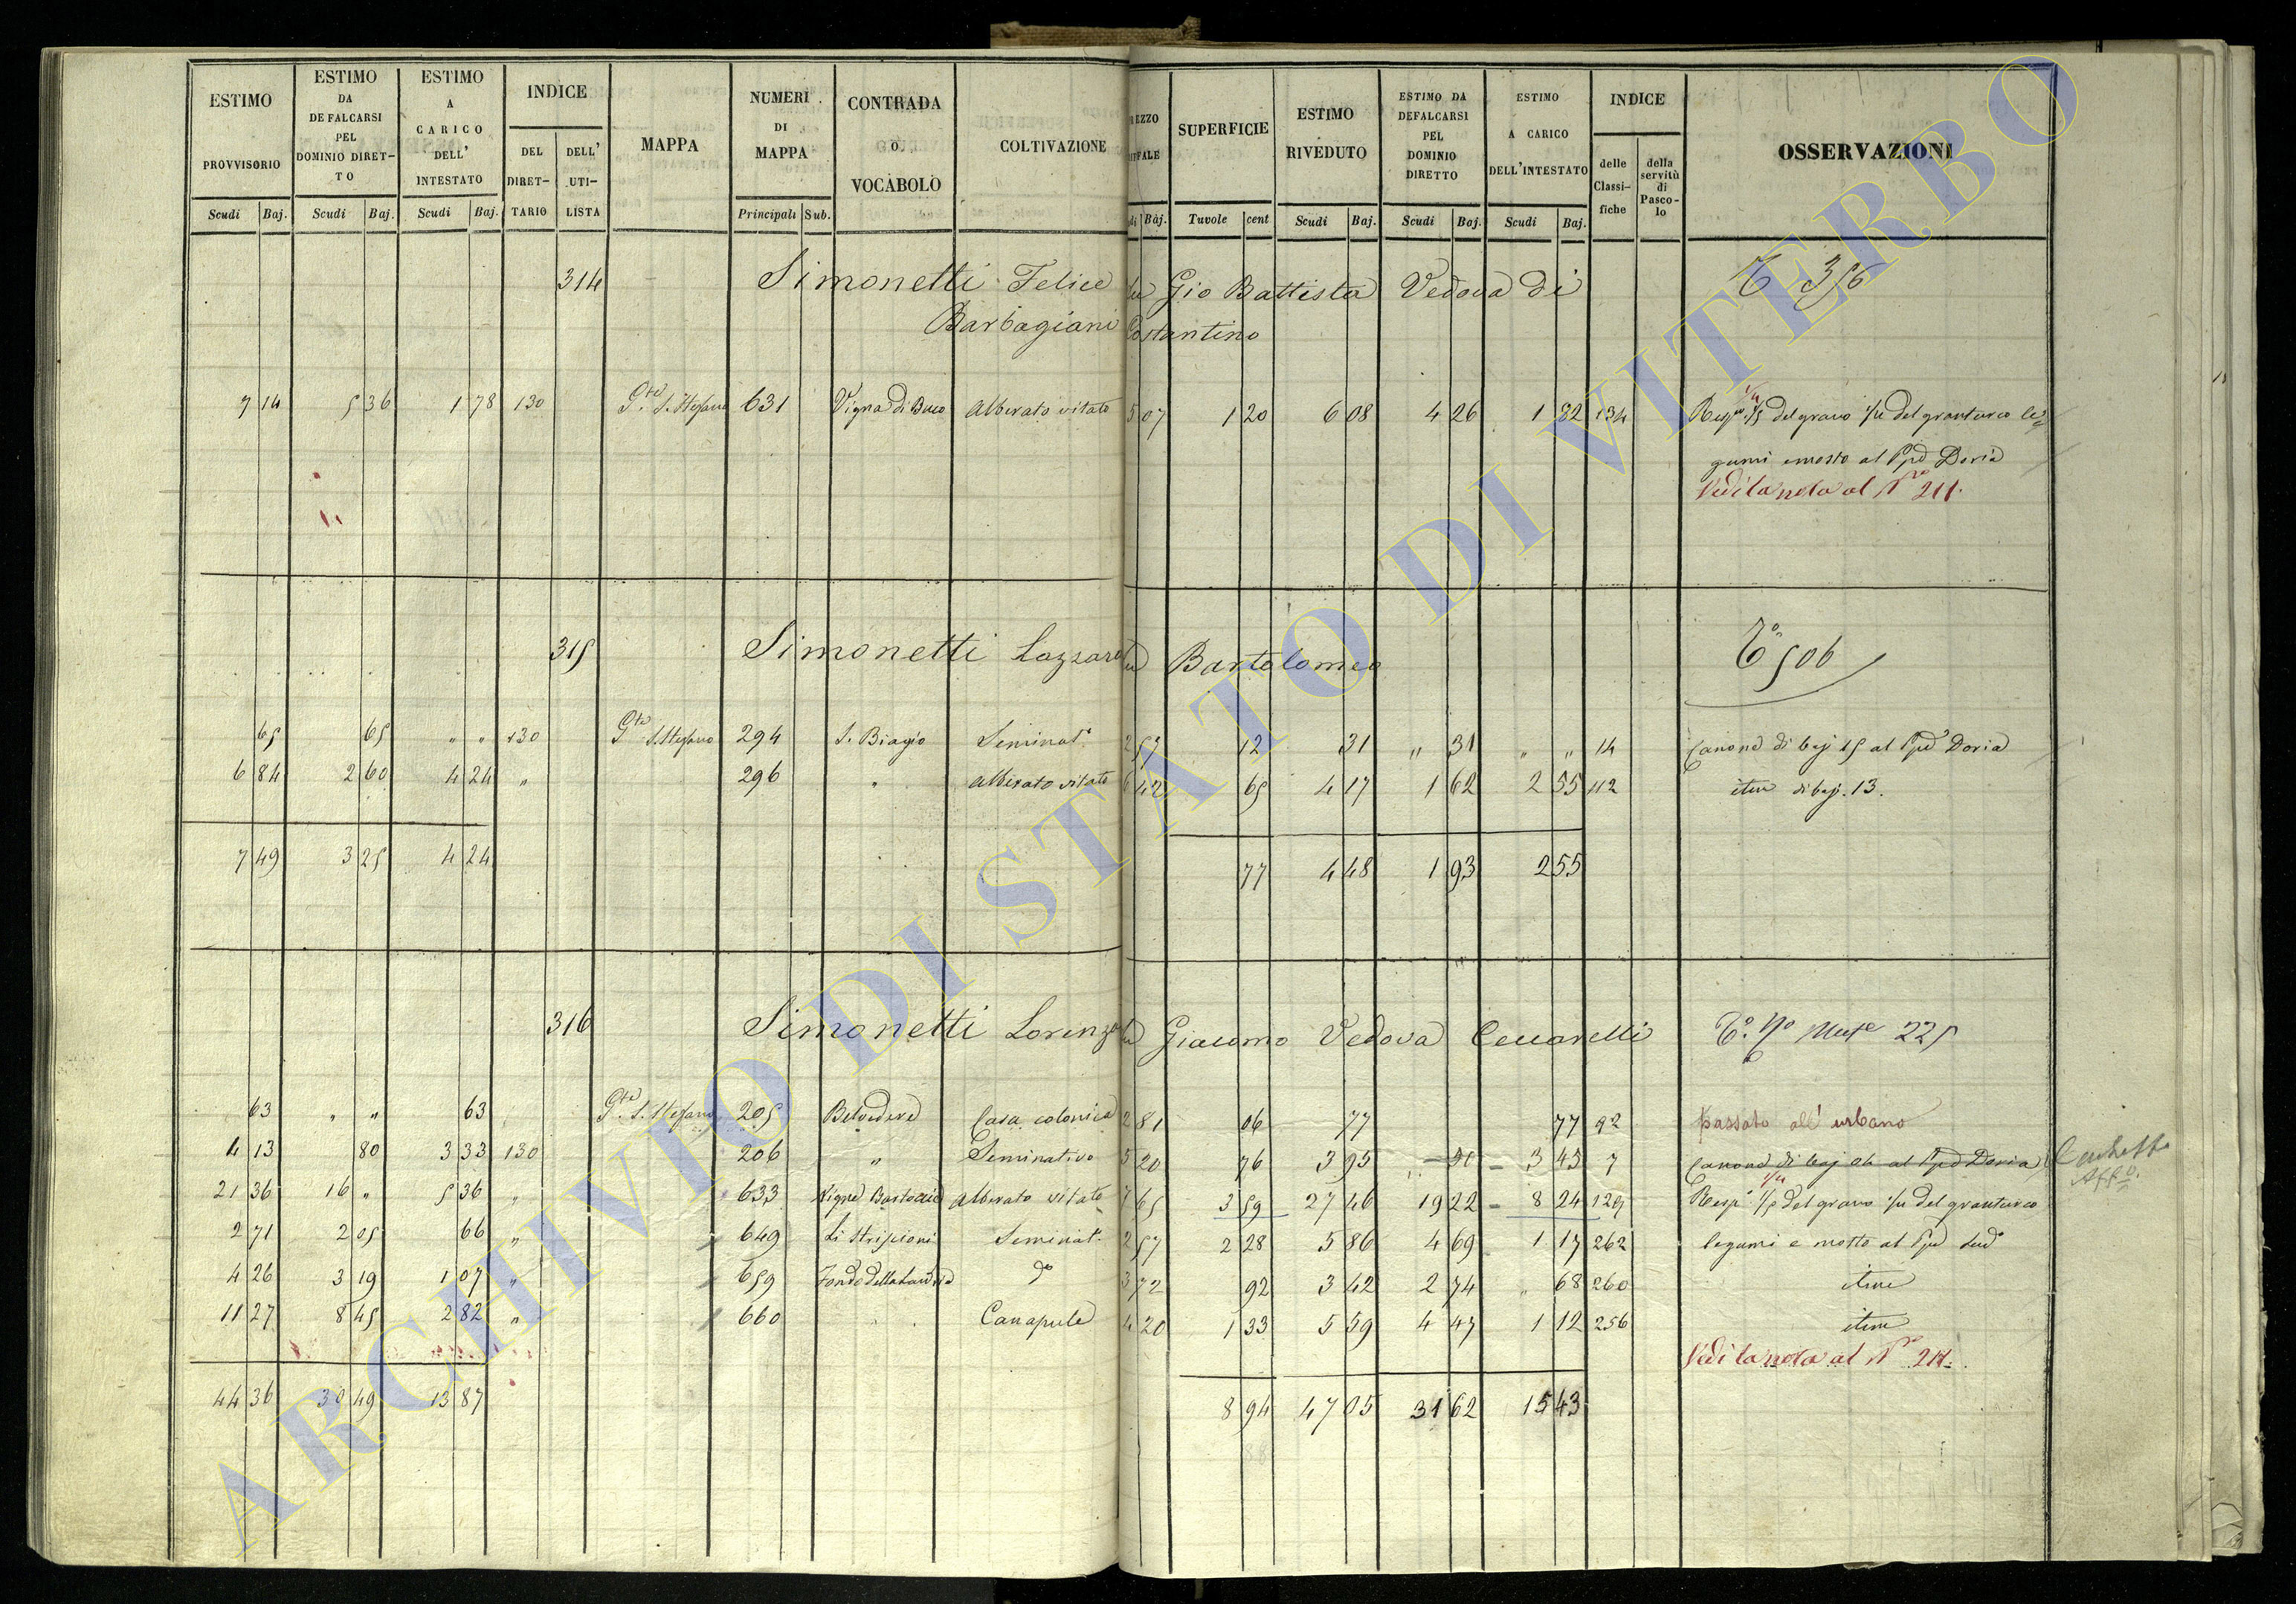 ESTIMO PROVVISORIO Scudi Baj.
ESTIMO DA DEFALCARSI PEL DOMINIO DIRET-TO Scudi Baj.
ESTIMO A CARICO DELL' INTESTATO Scudi Baj.
INDICE DEL DIRET-TARIO DELL' UTI-LISTA
MAPPA
NUMERI DI MAPPA Principali Sub.
CONTRADA O VOCABOLO
COLTIVAZIONE
Baj.
SUPERFICIE Tavole cent
ESTIMO RIVEDUTO Scudi Baj.
ESTIMO DA DEFALCARSI PEL DOMINIO DIRETTO Scudi Baj.
ESTIMO A CARICO DELL'INTESTATO Scudi Baj.
INDICE delle Classi-fiche della servitù di Pasco-lo
OSSERVAZIONI
314 Simonetti Felice Gio Battista Vedova di 356
Barbagiani Costantino
7 14 5 36 1 78 130 Gta. S. Stefano 631 Vigna di Buco Alberato vitato 5 07 1 20 6 08 4 26 1 82 134 Resp. 1/5 del grano 1/4 del granturco le=
gumi e mosto al Ppe Doria
Vedi la nota al No 211.
315 Simonetti Lazzaro Bartolomeo To 506
65 65 " " 130 Gta S. Stefano 294 S. Biagio Seminato 2 57 12 31 " 31 " " 14 Canone di baj 15 al Ppe Doria
6 84 2 60 4 24 " 296 " Alberato vitato 6 42 65 4 17 1 62 2 55 112 itm di baj. 13.
7 49 3 25 4 24 77 4 48 1 93 2 55
316 Simonetti Lorenzo Giacomo Vedova Ceccarelli 225
63 " " 63 Gta. S. Stefano 205 Belvedere Casa colonica 2 81 06 77 77 92 passato all' urbano
4 13 80 3 33 130 206 " Seminativo 5 20 76 3 95 3 45 7 Canone di baj 06 al Ppe Doria
21 36 16 " 5 36 " 633 Vigne Alberato vitato 7 65 3 59 27 46 19 22 8 24 129 Resp. 1/5 del grano 1/4 del granturco
2 71 2 05 66 " 649 Li Striscioni Seminat. 2 57 2 28 5 86 4 69 1 17 262 legumi e mosto al Ppe sud
4 26 3 19 1 07 " 659 Fondo della do 3 72 92 3 42 2 74 " 68 260 itm
11 27 8 45 2 82 " 660 Canapule 4 20 1 33 5 59 4 47 1 12 256 itm
Vedi la nota al No 211.
44 36 30 49 13 87 8 94 47 05 31 62 15 43
ARCHIVIO DI STATO DI VITERBO